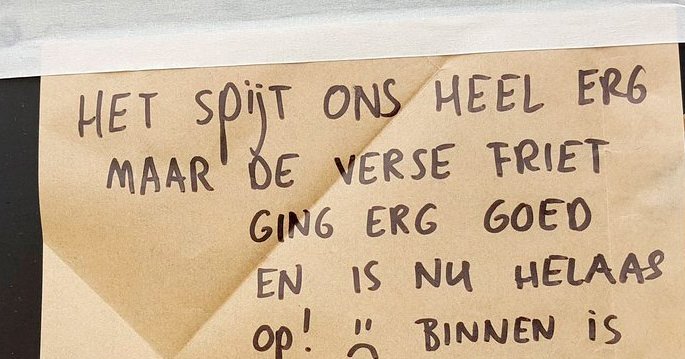 HET SPIJT ONS HEEL ERG
MAAR DE VERSE FRIET
GING ERG GOED
EN IS NU HELAAS
OP! :( BINNEN IS